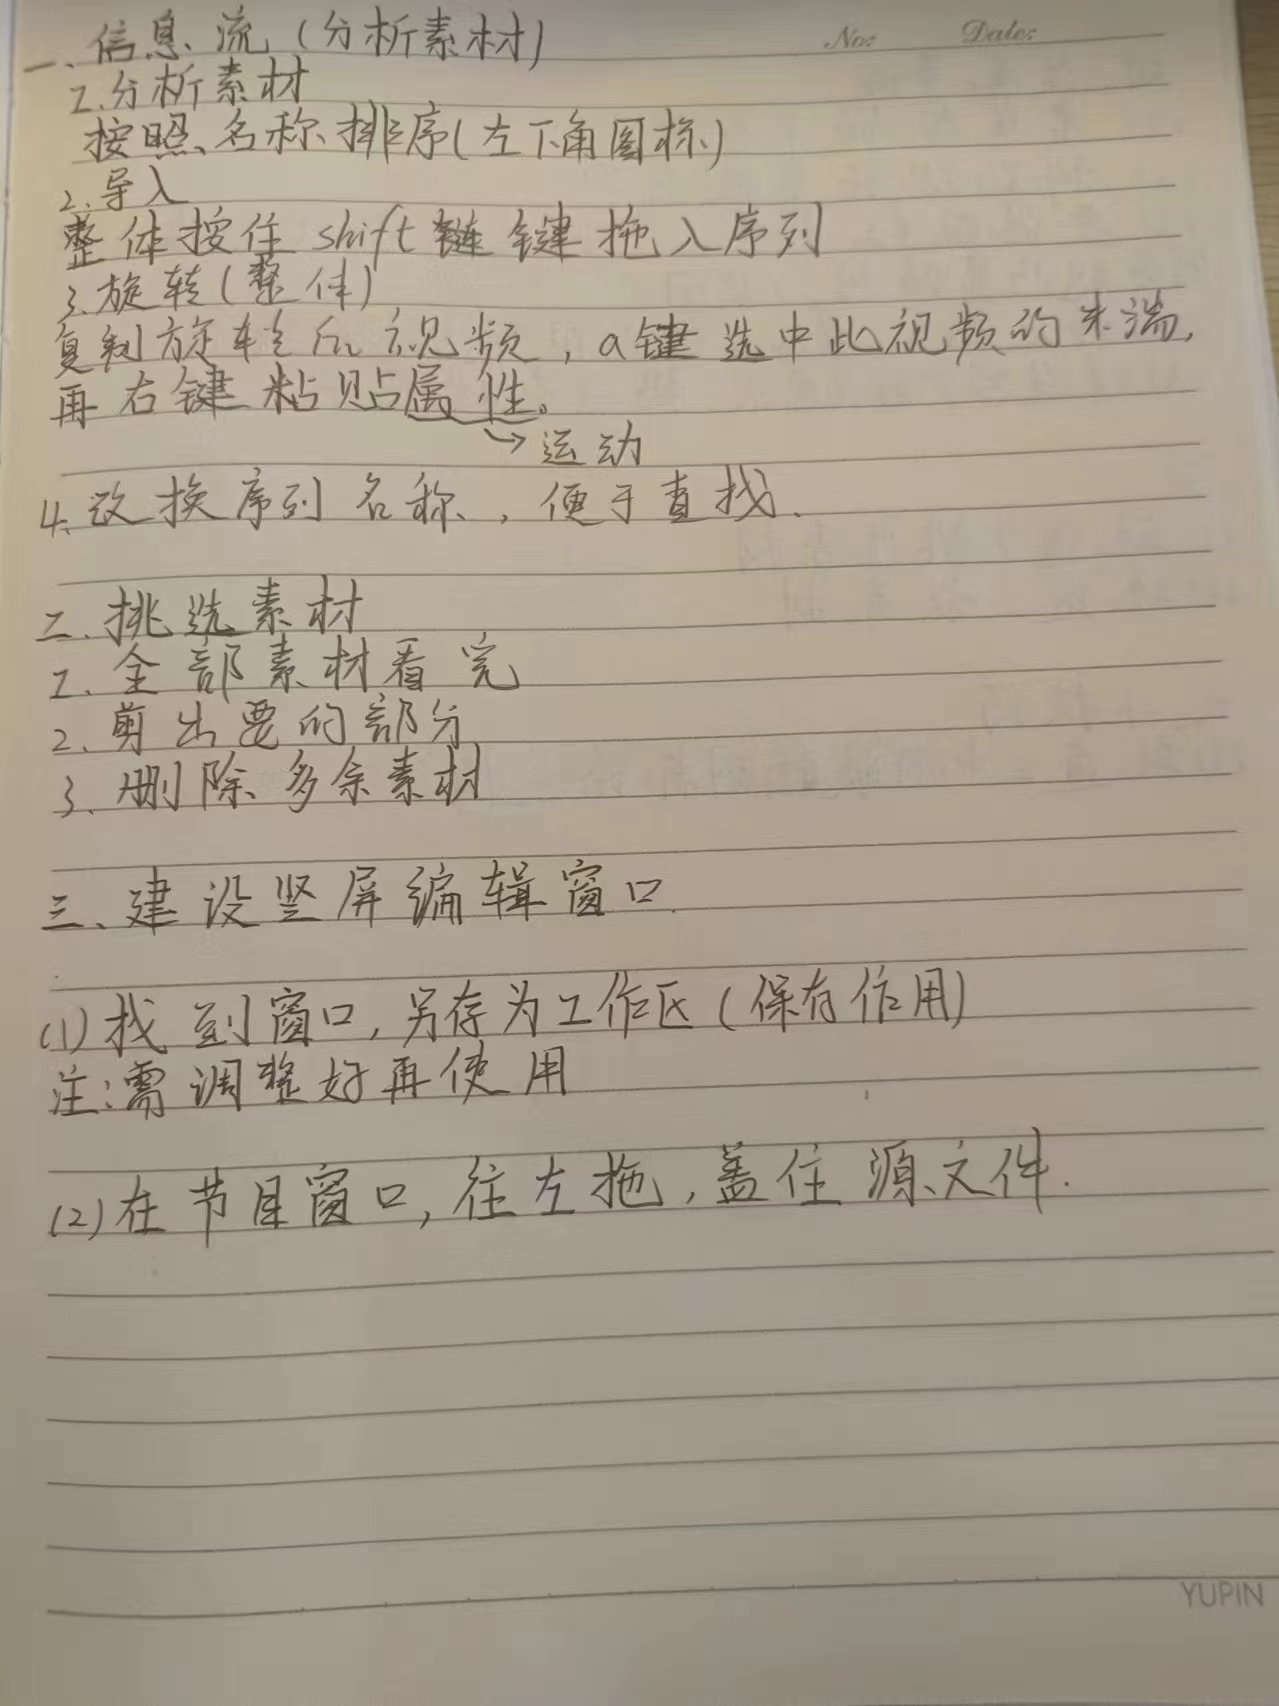 No: Date:
一、信息流(分析素材)
1.分析素材
按照名称排序(左下角图标)
2.导入
整体按住shift键键拖入序列
3.旋转(整体)
复制旋转后视频,a键选中此视频的末端,
再右键粘贴属性。
→运动
4.改换序列名称,便于查找.
二.挑选素材
1.全部素材看完
2.剪出要的部分
3.删除多余素材
三、建设竖屏编辑窗口.
(1)找到窗口,另存为工作区(保存作用)
注:需调整好再使用
(2)在节目窗口,往左拖,盖住源文件.
YUPIN